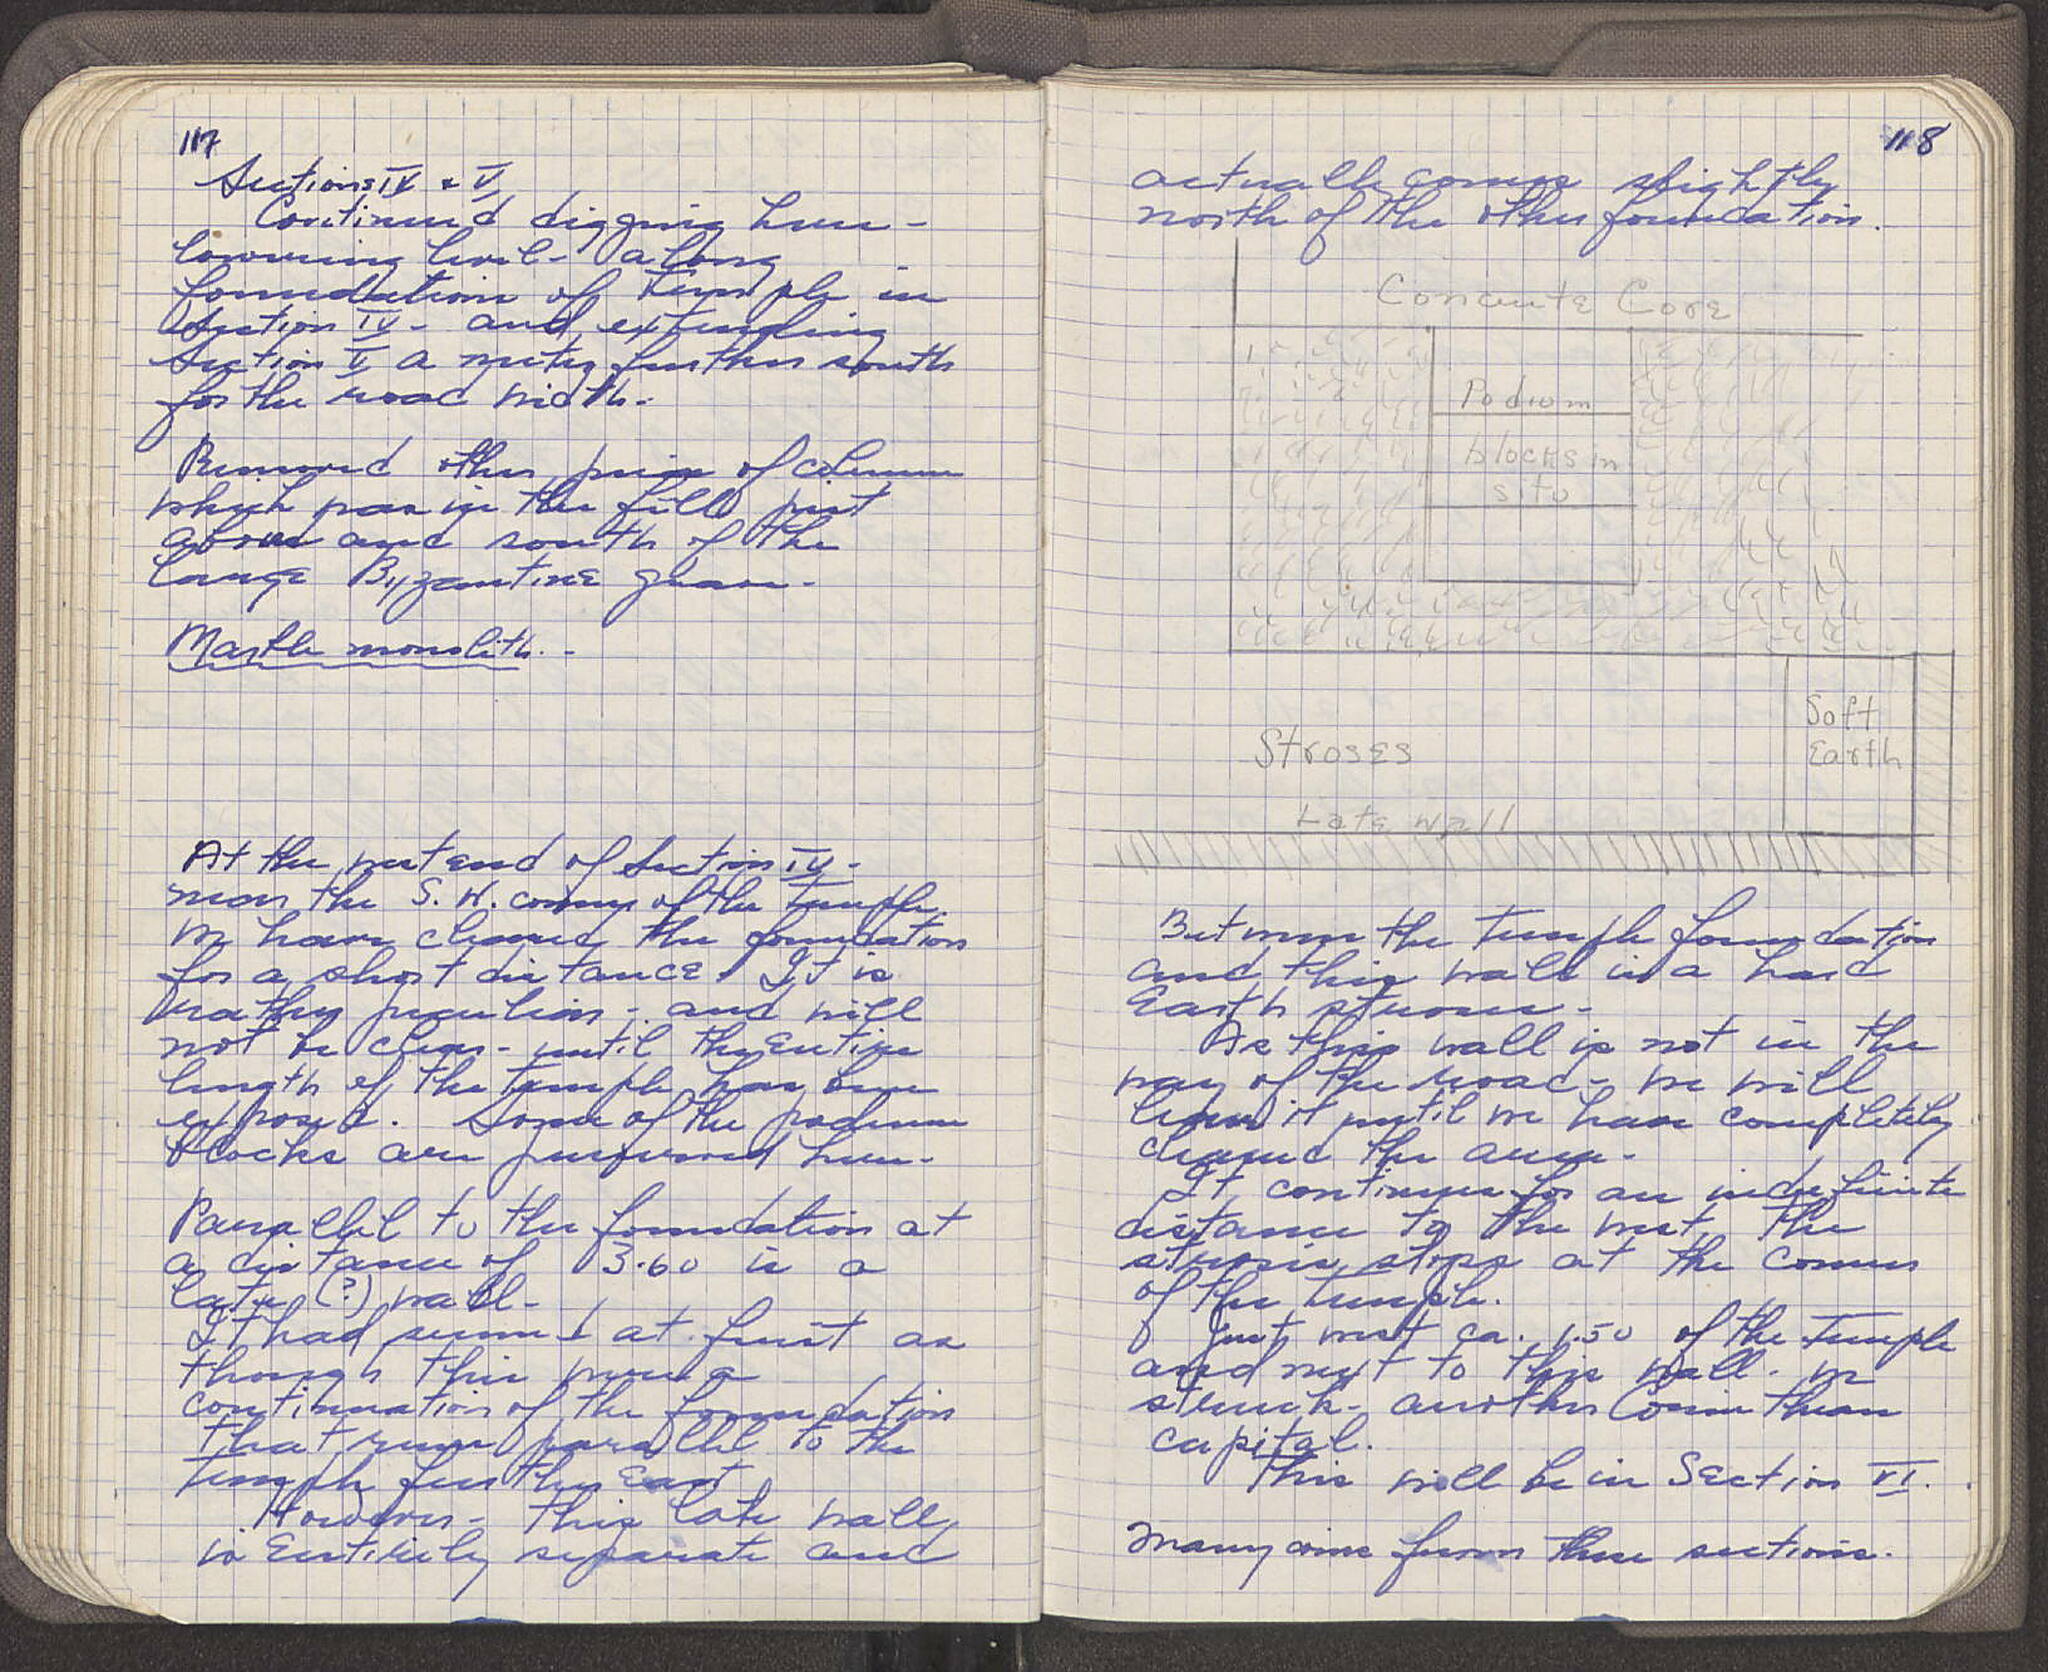 117
Sections IV & V
Continued digging here -
lowering level - along
foundation of temple in
Section IV - and extending
Section V a meter further south
for the road width -
Removed other piece of column
which was in the fill just
above and south of the
large Byzantine grave -
Marble monolith. -
At the west end of Section IV -
near the S. W. corner of the Temple
we have cleared the foundation
for a short distance. It is
rather peculiar - and will
not be clear - until the entire
length of the temple has been
exposed. Some of the podium
blocks are preserved here -
Parallel to the foundation at
a distance of 3.60 is a
late (?) wall -
It had seemed at first as
though this were a
continuation of the foundation
that runs parallel to the
temple further East
However - this late wall
is Entirely separate and
118
actually comes slightly
north of the other foundation.
Concrete Core
Podium
blocks in
situ
Soft
Earth
Stroses
Late wall
Between the Temple foundation
and this wall is a hard
Earth stroses -
As this wall is not in the
way of the road - we will
leave it until we have completely
cleared the area -
It continues for an indefinite
distance to the west, the
strosis stops at the corner
of the temple.
Just west ca. 1.50 of the Temple
and next to this wall - we
struck - another Corinthian
capital.
This will be in Section VI.
Many coins from these sections.